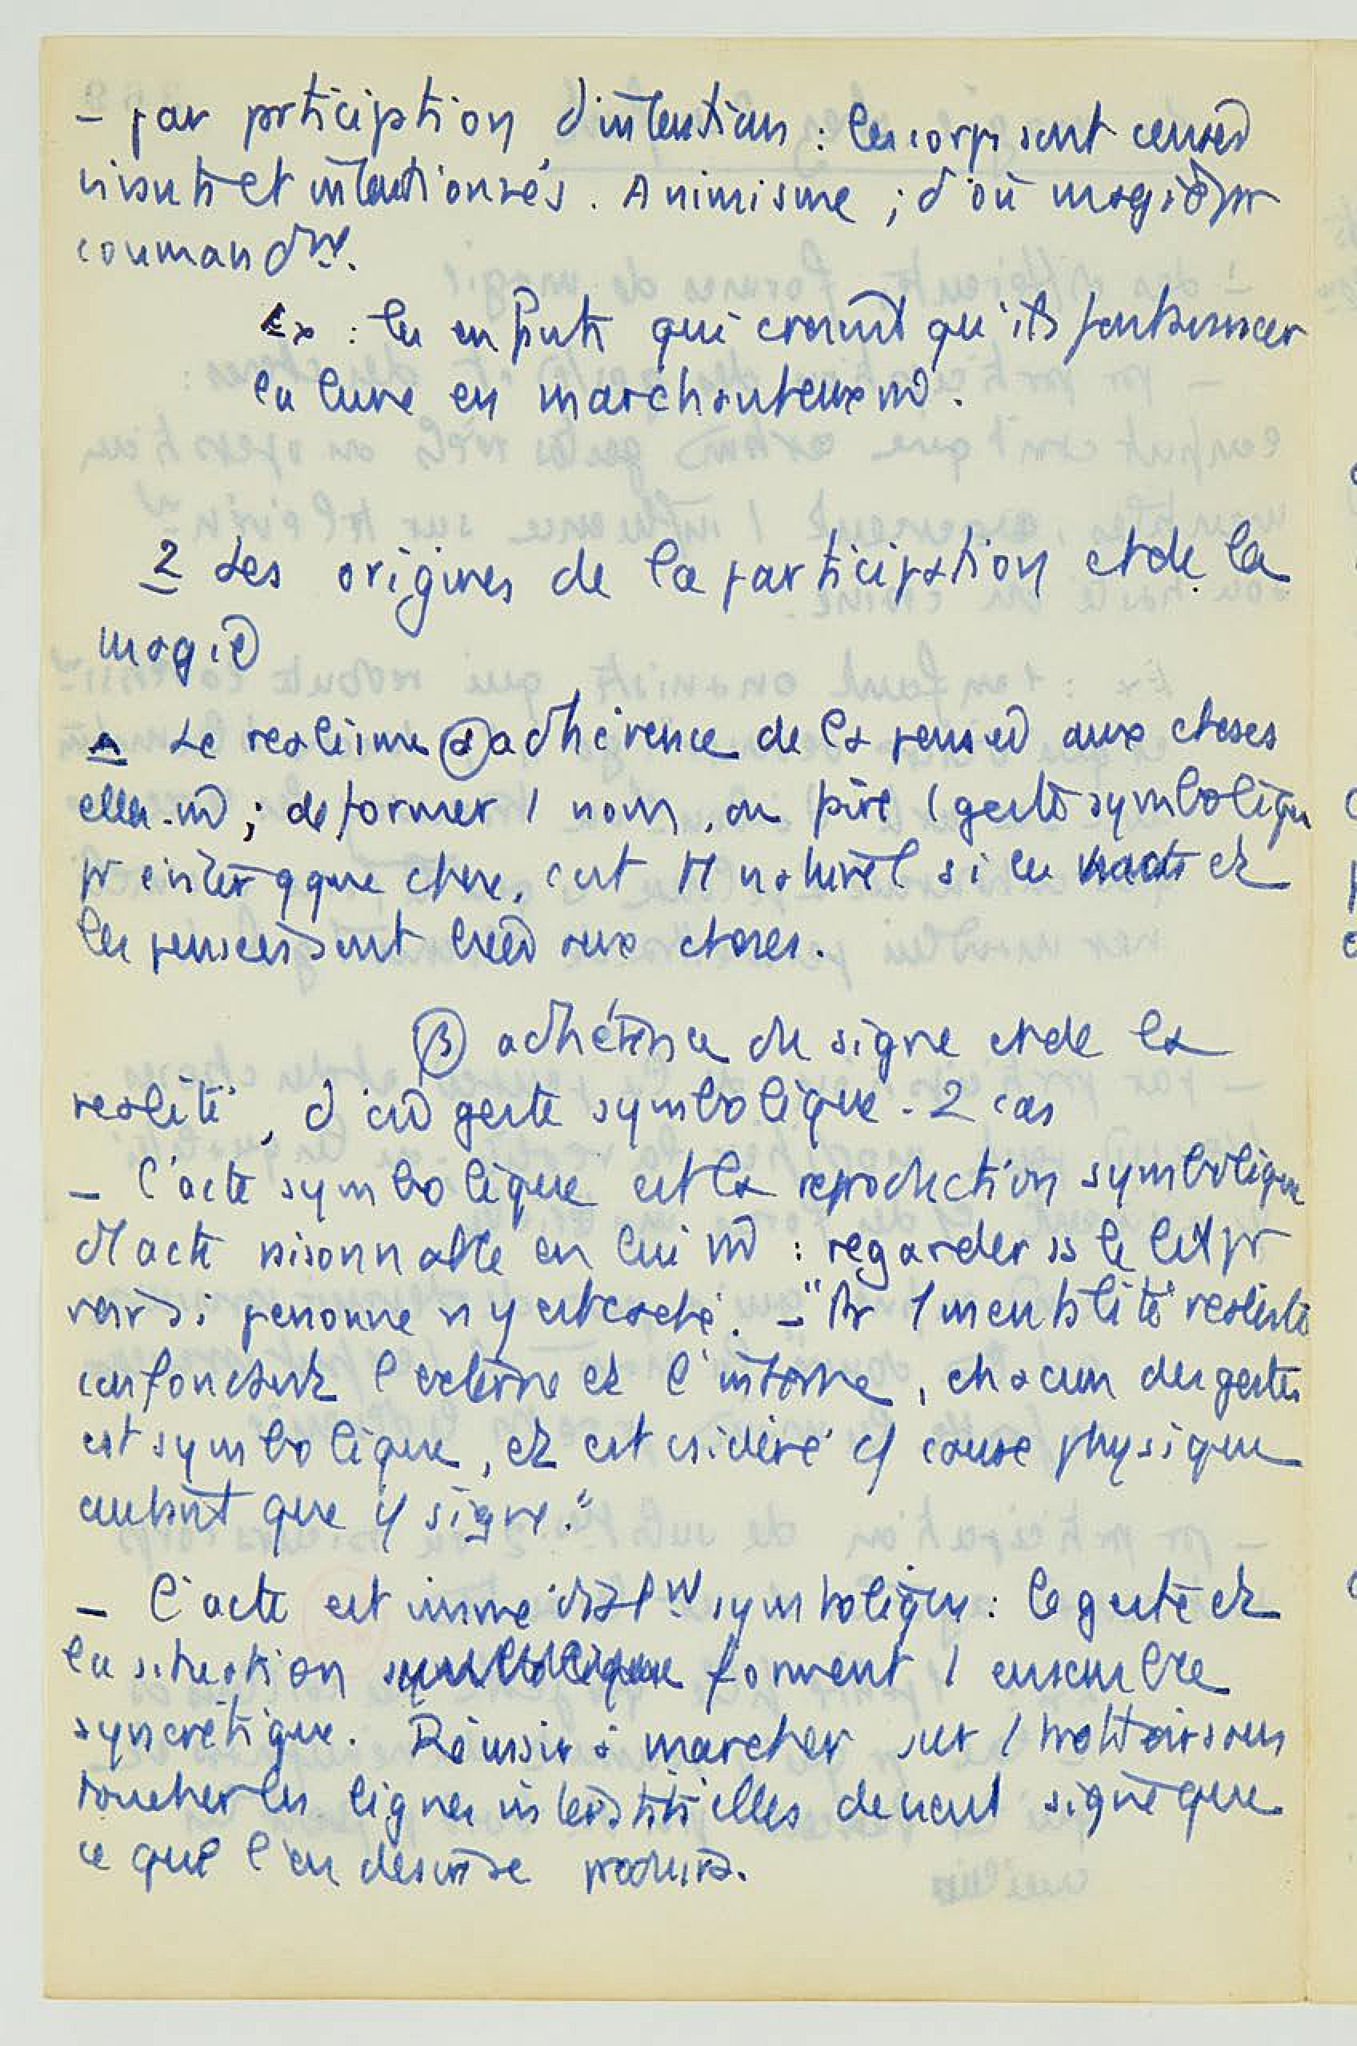 - par prticiption d'intentions : les corps sont censés
vivants et intentionnés. Animisme ; d'où magie pr
commandmt.
Ex : les enfants qui croient qu'ils font avancer
la lune en marchant eux m̂.
2 Les origines de la participation et de la
magie
A Le réalisme α adhérence de la pensée aux choses
elles-m̂ ; de former 1 nom, ou faire 1 geste symbolique
pr éviter qque chose, c'est naturel si les mots et
les pensées sont liées aux choses.
β adhérence du signe et de la
réalité, d'où geste symbolique - 2 cas
- l'acte symbolique est la reproduction symbolique
d'1 acte raisonnable en lui m̂ : regarder ss le lit pr
voir si personne n'y est caché. - "Pr 1 mentalité réaliste
confondant l'externe et l'interne, chacun des gestes
est symbolique, et est csidéré cy cause physique
autant que cy signe."
- l'acte est immédiatmt symbolique : le geste et
la situation forment 1 ensemble
syncrétique. Réussir à marcher sur 1 trottoir sans
toucher les lignes interstitielles devient signe que
ce que l'on désire se produira.